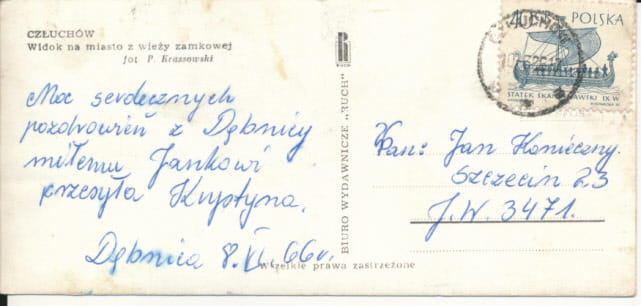 CZŁUCHÓW
Widok na miasto z wieży zamkowej
fot P. Krassowski
Moc serdecznych
pozdrowień z Dębnicy
miłemu Jankowi
przesyła Krystyna.
Dębnica 8.VI.66r.
BIURO WYDAWNICZE „RUCH”
Wszelkie prawa zastrzeżone
40 GR POLSKA
STATEK SKANDYNAWSKI IX W
CZŁUCHÓW
Pan: Jan Konieczny.
Szczecin 23
J.W. 3471.